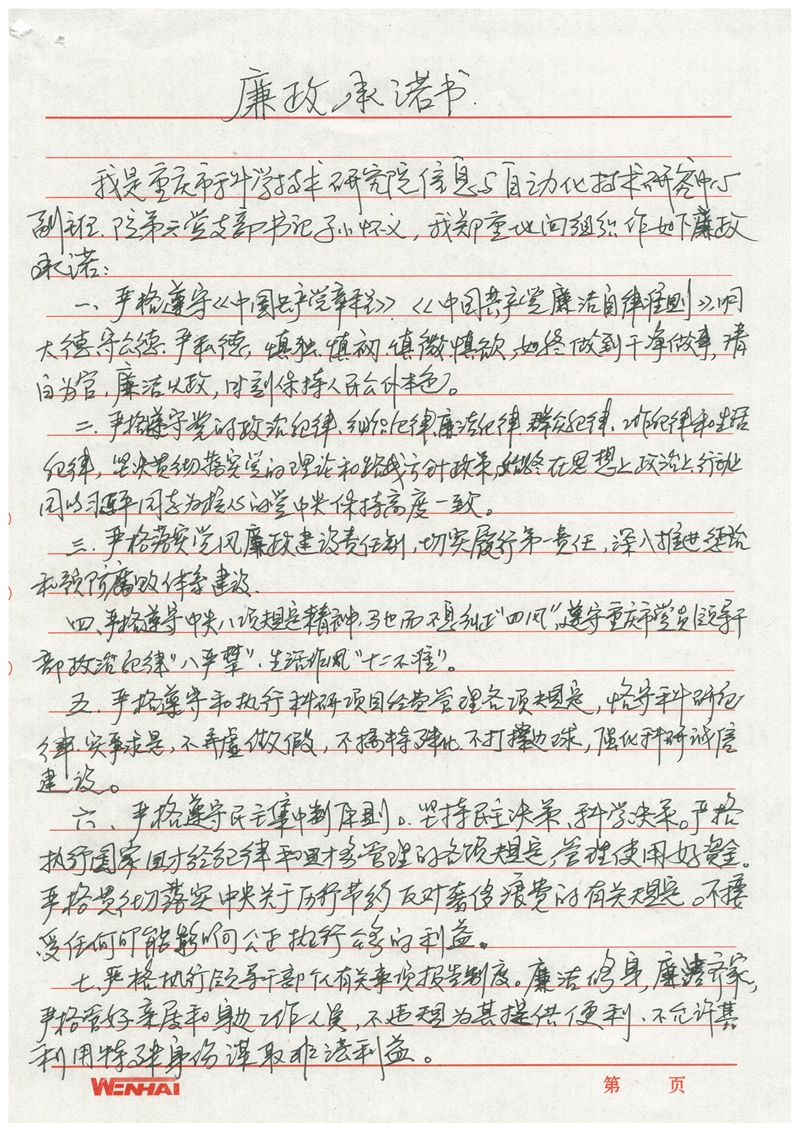 廉政承诺书
我是重庆市科学技术研究院信息与自动化技术研究中心
副主任、院第六党支部书记孙怀义，我郑重地向组织作如下廉政
承诺：
一、严格遵守《中国共产党章程》、《中国共产党廉洁自律准则》，明
大德、守公德、严私德，慎独、慎初、慎微、慎欲，始终做到干净做事，清
白为官，廉洁从政，时刻保持人民公仆本色。
二、严格遵守党的政治纪律、组织纪律、廉洁纪律、群众纪律、工作纪律和生活
纪律，坚决贯彻落实党的理论和路线方针政策，始终在思想上政治上行动上
同以习近平同志为核心的党中央保持高度一致。
三、严格落实党风廉政建设责任制，切实履行第一责任，深入推进惩治
和预防腐败体系建设。
四、严格遵守中央八项规定精神，驰而不息纠正“四风”，遵守重庆市党员领导干
部政治纪律“八严禁”、生活作风“十二不准”。
五、严格遵守和执行科研项目经费管理各项规定，恪守科研纪
律，实事求是，不弄虚做假，不搞特殊化，不打擦边球，强化科研诚信
建设。
六、严格遵守民主集中制原则。坚持民主决策、科学决策。严格
执行国家财经纪律和财务管理的各项规定，管理使用好资金。
严格贯彻落实中央关于厉行节约反对奢侈浪费的有关规定。不接
受任何可能影响公正执行公务的利益。
七、严格执行领导干部个人有关事项报告制度。廉洁修身，廉洁齐家，
严格管好亲属和身边工作人员，不违规为其提供便利，不允许其
利用特殊身份谋取非法利益。
WENHAI 第 页